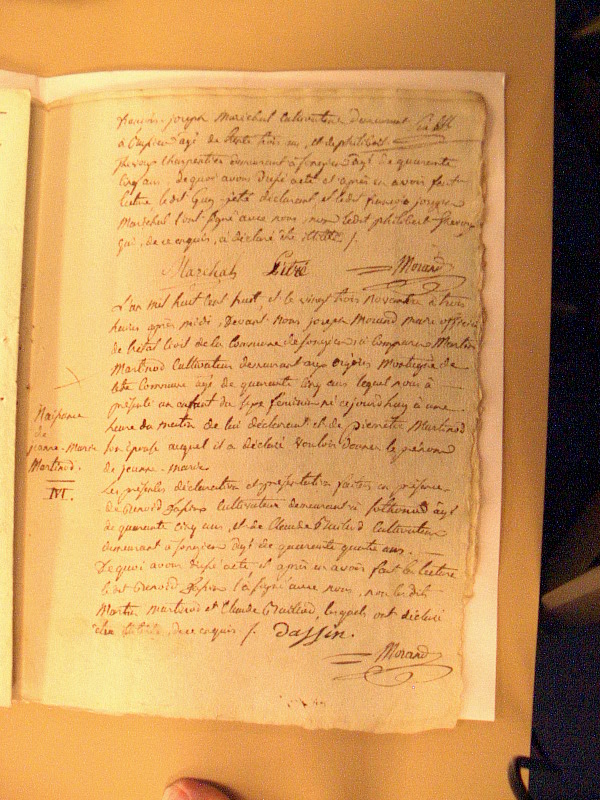 joseph Marechal Cultivateur demeurant
agé de trente trois ans, et de philibert
charpentier demeurant à Songieu agé de quarante
cinq ans. de quoi avons dressé acte et après en avoir fait
lecture ledit Guy déclarant et ledit françois joseph
Marechal l'ont signé avec nous, non ledit philibert
qui, de ce enquis, a déclaré être
Marechal
Morand
L'an mil huit cent huit, et le vingt trois novembre à trois
heures après midi, Devant nous joseph Morand maire officier
de l'état civil de la Commune de Songieu, a comparu Martin
Martinod Cultivateur demeurant aux montagne de
cette Commune agé de quarante cinq ans lequel nous à
présenté un enfant du sexe féminin né cejourd'huy à une
heure du matin de lui déclarant et de pierrette Martinod
son épouse auquel il a déclaré vouloir donner le prénom
de jeanne-marie
Les présentes déclaration et présentation faites en présence
de Benoid Dassin Cultivateur demeurant à Sothonod agé
de quarante cinq ans, et de Claude Cultivateur
demeurant à Songieu agé de quarante quatre ans.
De quoi avons dressé acte et après en avoir fait la lecture
ledit Benoid Dassin l'a signé avec nous, non lesdits
Martin Martinod et Claude lesquels ont déclaré
être de ce enquis /. Dassin.
Morand
Naissance
de
jeanne-Marie
Martinod.
M.